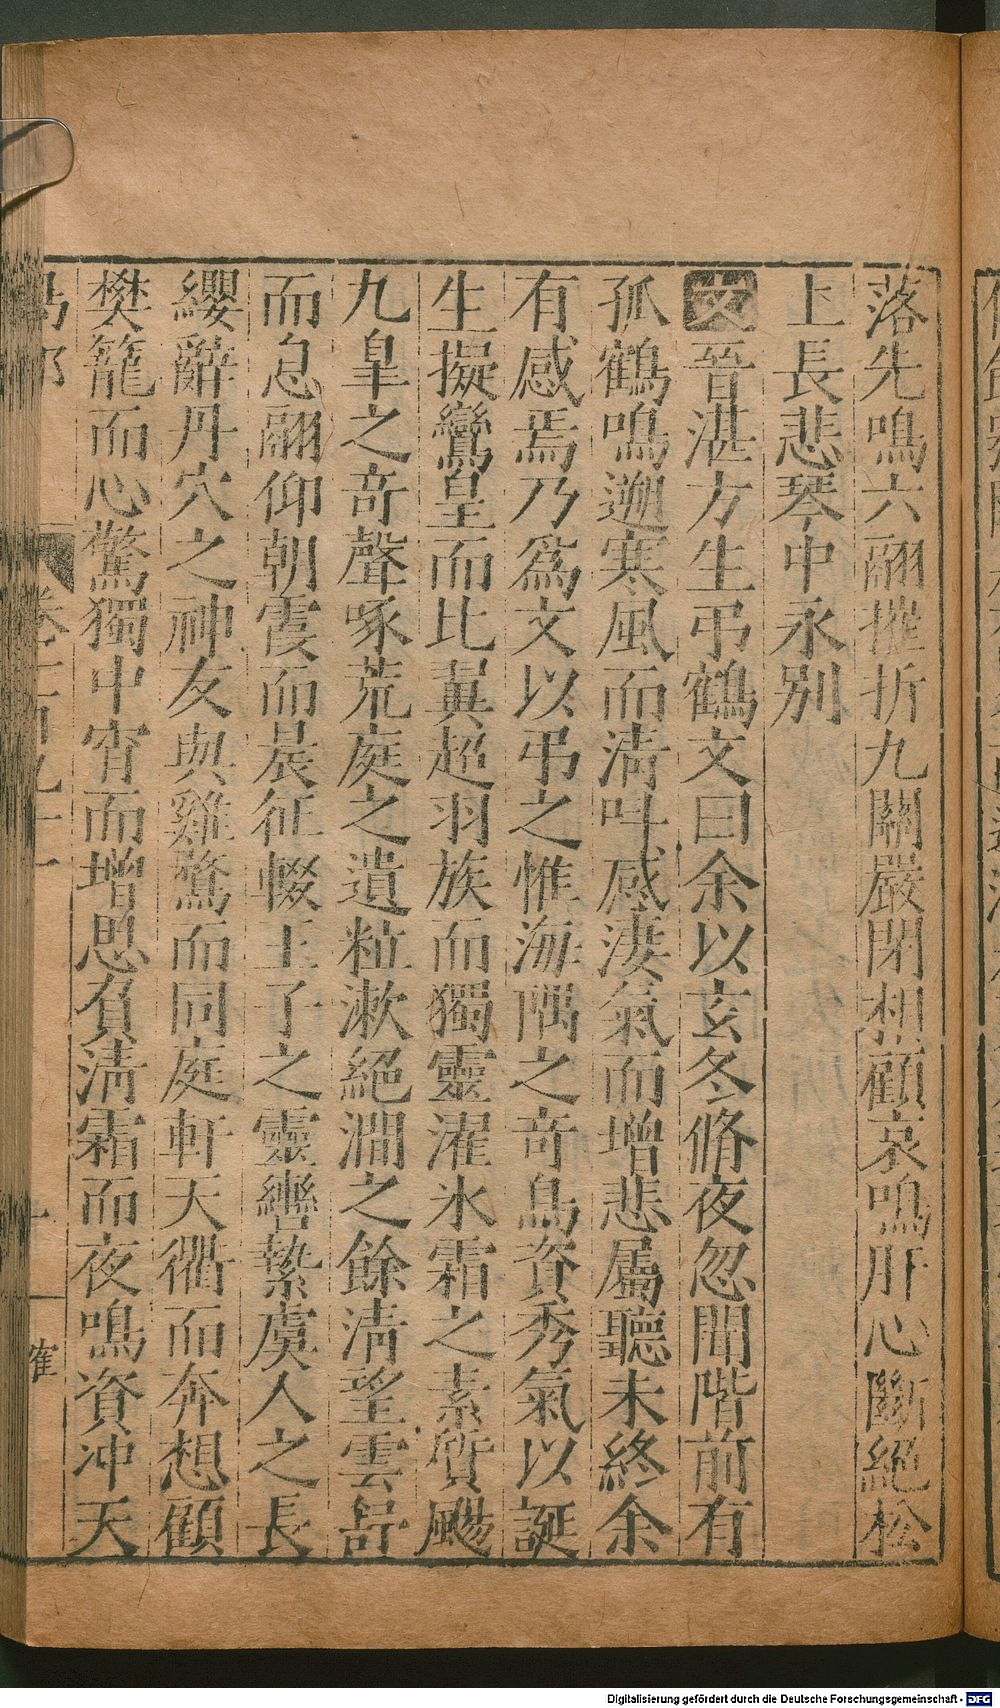 落先鳴六翮摧折九關嚴閉相顧哀鳴肝心斷絕松
上長悲琴中永別
文晉湛方生弔鶴文曰余以玄冬脩夜忽聞階前有
孤鶴鳴遡寒風而清叫感淒氣而增悲屬聽未終余
有感焉乃爲文以弔之惟海隅之奇鳥資秀氣以誕
生擬鸞皇而比翼超羽族而獨靈濯氷霜之素質颺
九皐之奇聲啄荒庭之遺粒漱絕澗之餘清望雲舒
而息翮仰朝霞而晨征輟王子之靈轡縶虞人之長
纓辭丹穴之神友與雞鶩而同庭軒天衢而奔想顧
樊籠而心驚獨中宵而增思負清霜而夜鳴資冲天
鳥部
卷
Digitalisierung gefördert durch die Deutsche Forschungsgemeinschaft - DFG